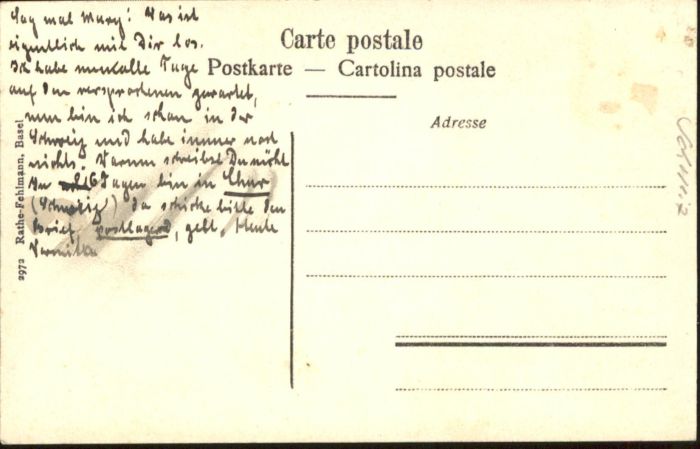 Sag mal Mary! Was ist
eigentlich mit Dir los.
Ich habe nun alle Tage
auf den versprochenen gewartet,
nun bin ich schon in der
Schweiz und habe immer noch
nichts. Warum schreibst Du nicht
In 6 Tagen bin in Chur
(Schweiz) da schicke bitte den
Brief postlagernd, gelt. Heute
Carte postale
Postkarte — Cartolina postale
Adresse
2972 Rathe-Fehlmann, Basel
Schweiz